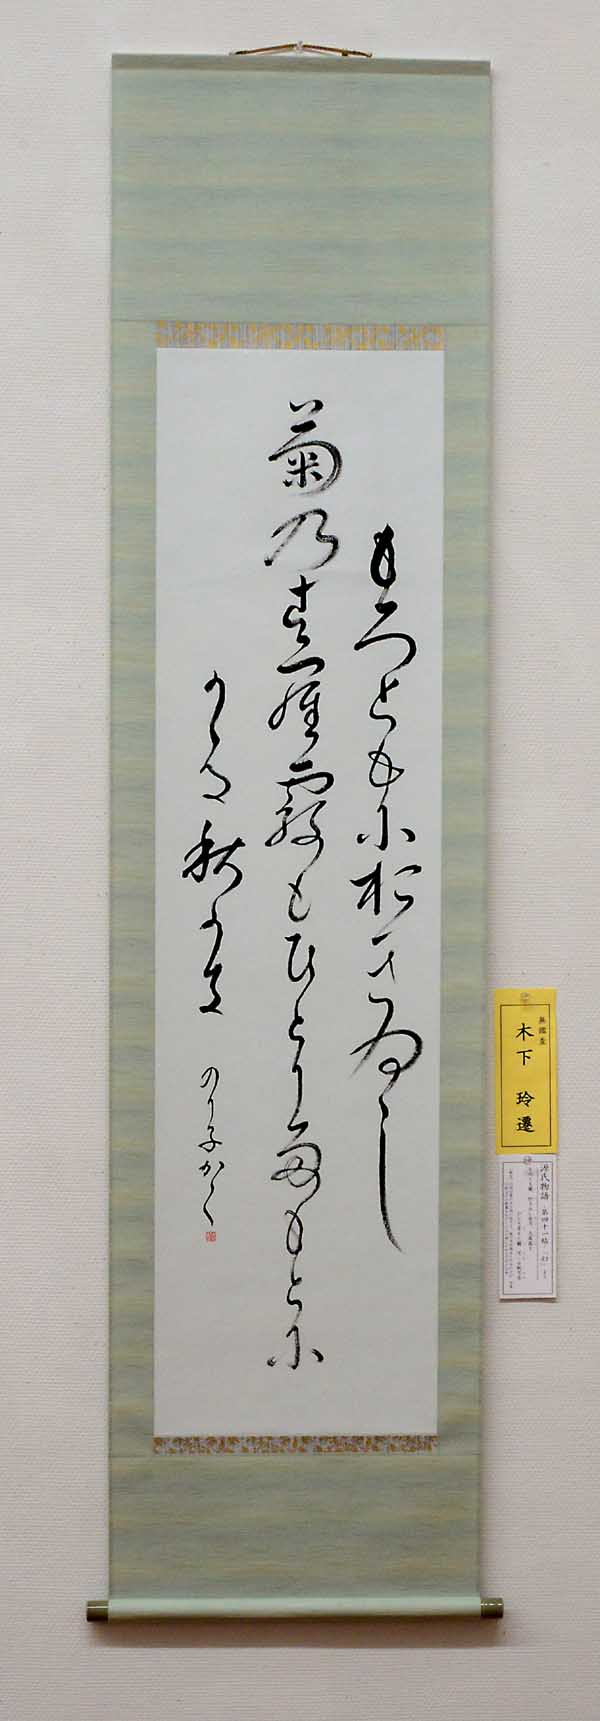 もろともにおきゐし
菊乃しら露もひとりたもとに
かゝる秋かな
のり子かく
無鑑査
木下 玲遷
源氏物語 第四十一帖 「幻」より